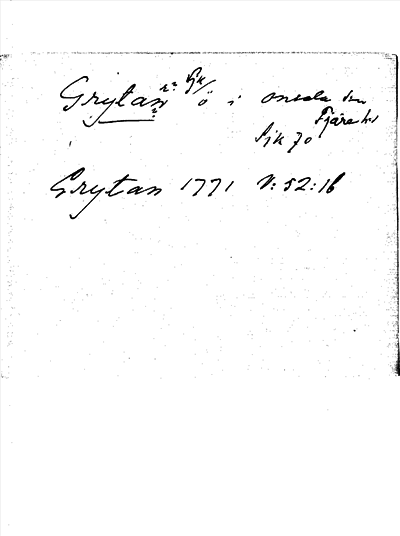 Grytan ö i Onsala sn
Fjäre hd
Sjk 70
Grytan 1771 V:52:16